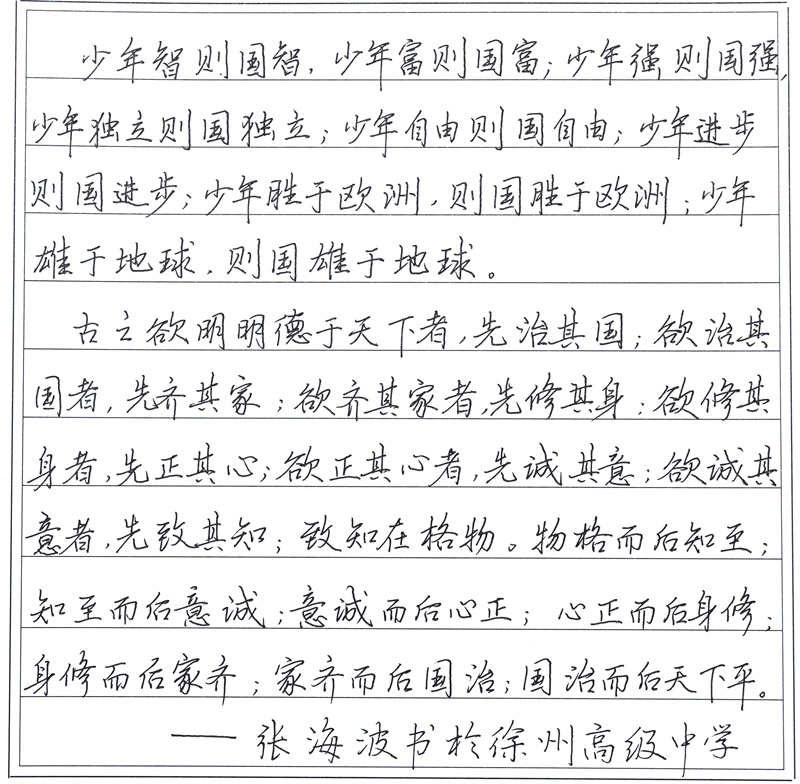 少年智则国智，少年富则国富；少年强则国强，
少年独立则国独立；少年自由则国自由；少年进步
则国进步；少年胜于欧洲，则国胜于欧洲；少年
雄于地球，则国雄于地球。
古之欲明明德于天下者，先治其国；欲治其
国者，先齐其家；欲齐其家者，先修其身；欲修其
身者，先正其心；欲正其心者，先诚其意；欲诚其
意者，先致其知；致知在格物。物格而后知至；
知至而后意诚；意诚而后心正；心正而后身修；
身修而后家齐；家齐而后国治；国治而后天下平。
——张海波书於徐州高级中学